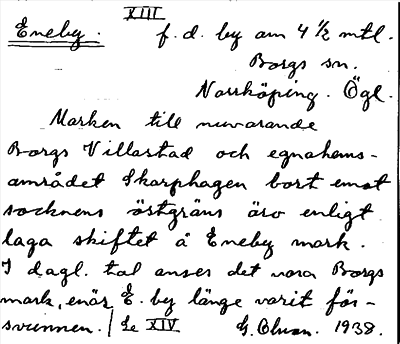 XIII
Eneby. f. d. by om 4 1/2 mtl.
Borgs sn.
Norrköping. Ögl.
Marken till nuvarande
Borgs Villastad och egnahems-
området Skarphagen bort emot
socknens östgräns äro enligt
laga skiftet å Eneby mark.
I dagl. tal anses det vara Borgs
mark, enär E. by länge varit för-
svunnen. / Se XIV G. Olsson. 1938.